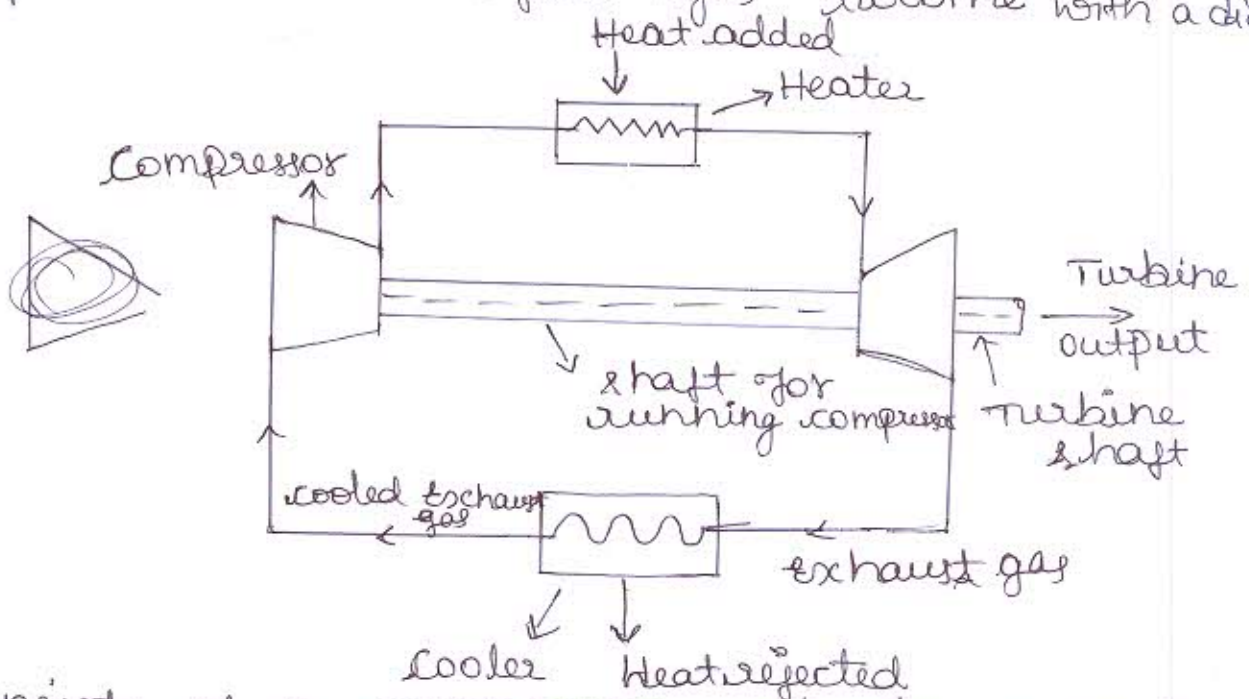 with a di
Heat added
Heater
Compressor
Turbine
output
shaft for
running compressor
Turbine
shaft
cooled Exhaust
gas
exhaust gas
cooler
Heat rejected